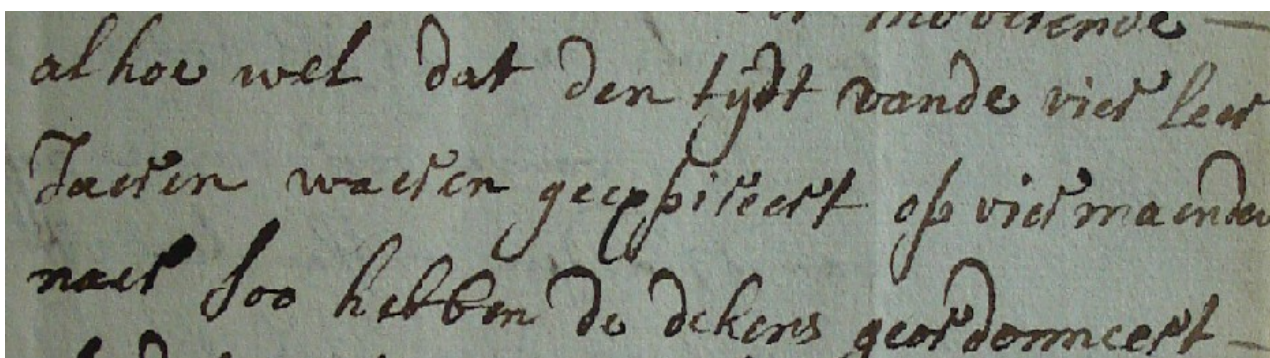 moverende
al hoe wel dat den tijdt vande vier leer
Jaeren waeren geexpireert op vier maenden
naer soo hebben de dekens geordonneert